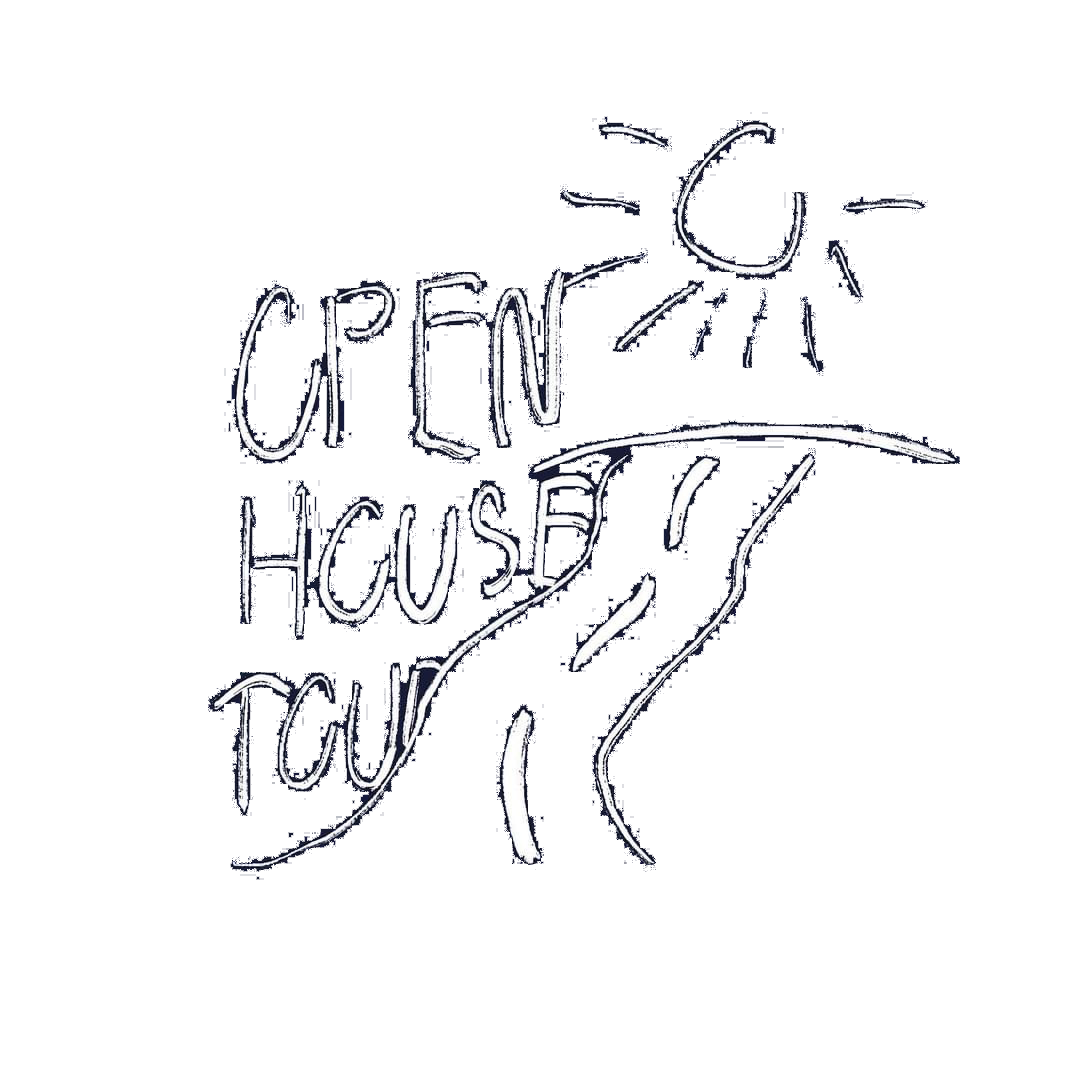 OPEN
HOUSE
TOUR